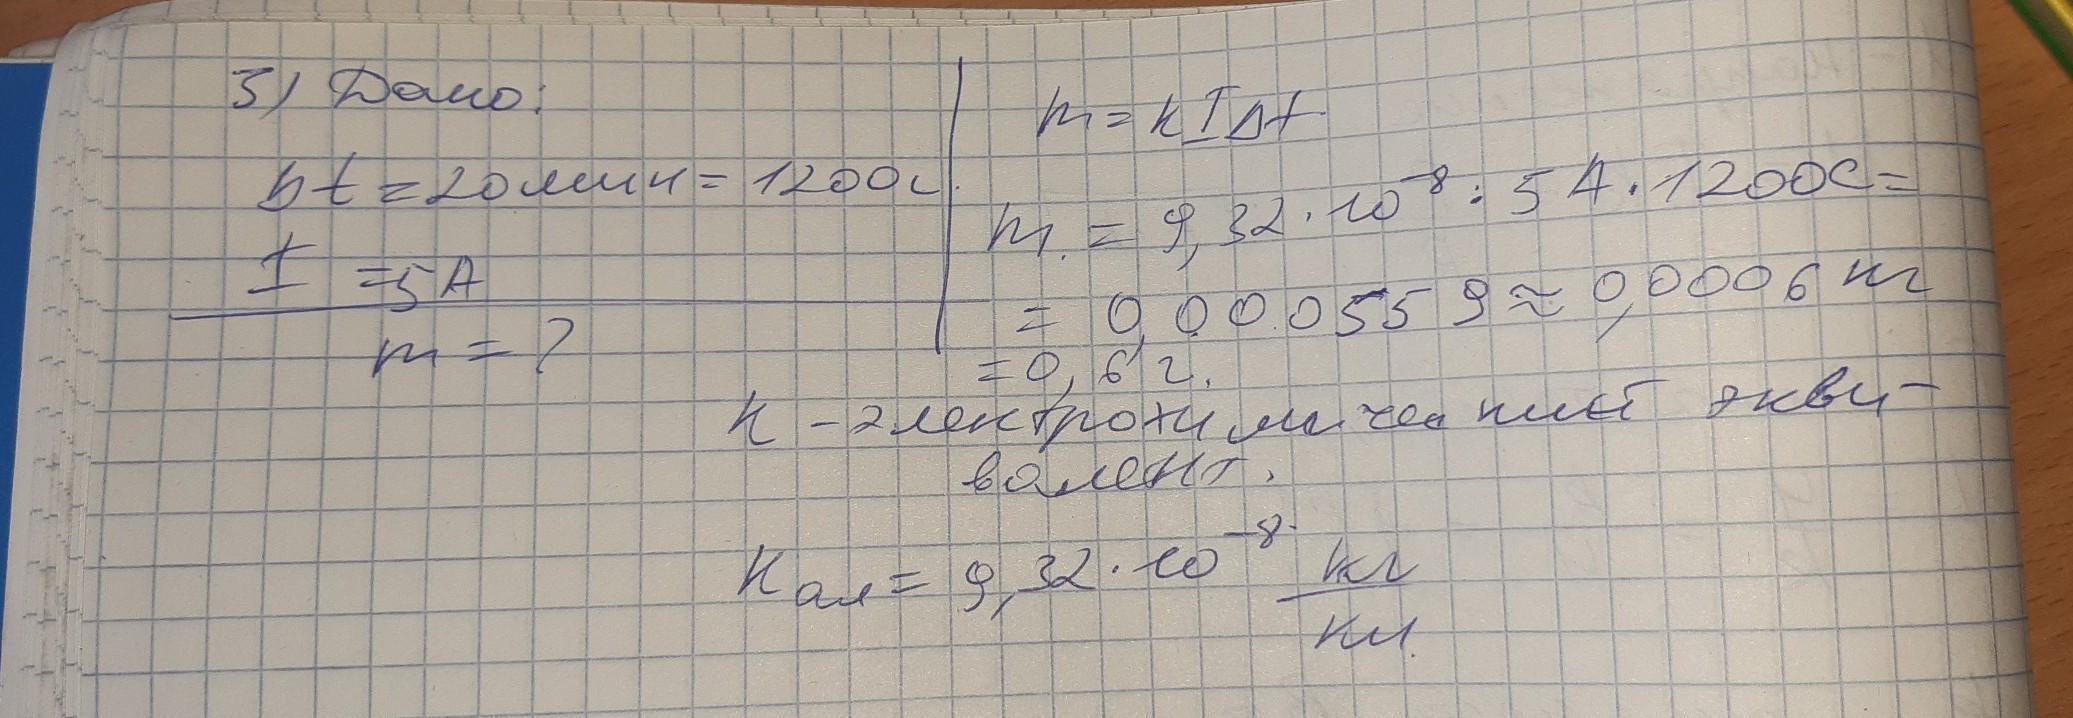 3) Дано:
Δt = 20 мин = 1200с.
I = 5 А
m = ?
m = kIΔt
m = 9,32 · 10⁻⁸ · 5 А · 1200с =
= 0,000559 ≈ 0,0006 кг
= 0,6 г.
k – электрохимический экви–
валент.
kал = 9,32 · 10⁻⁸ кг/кл.